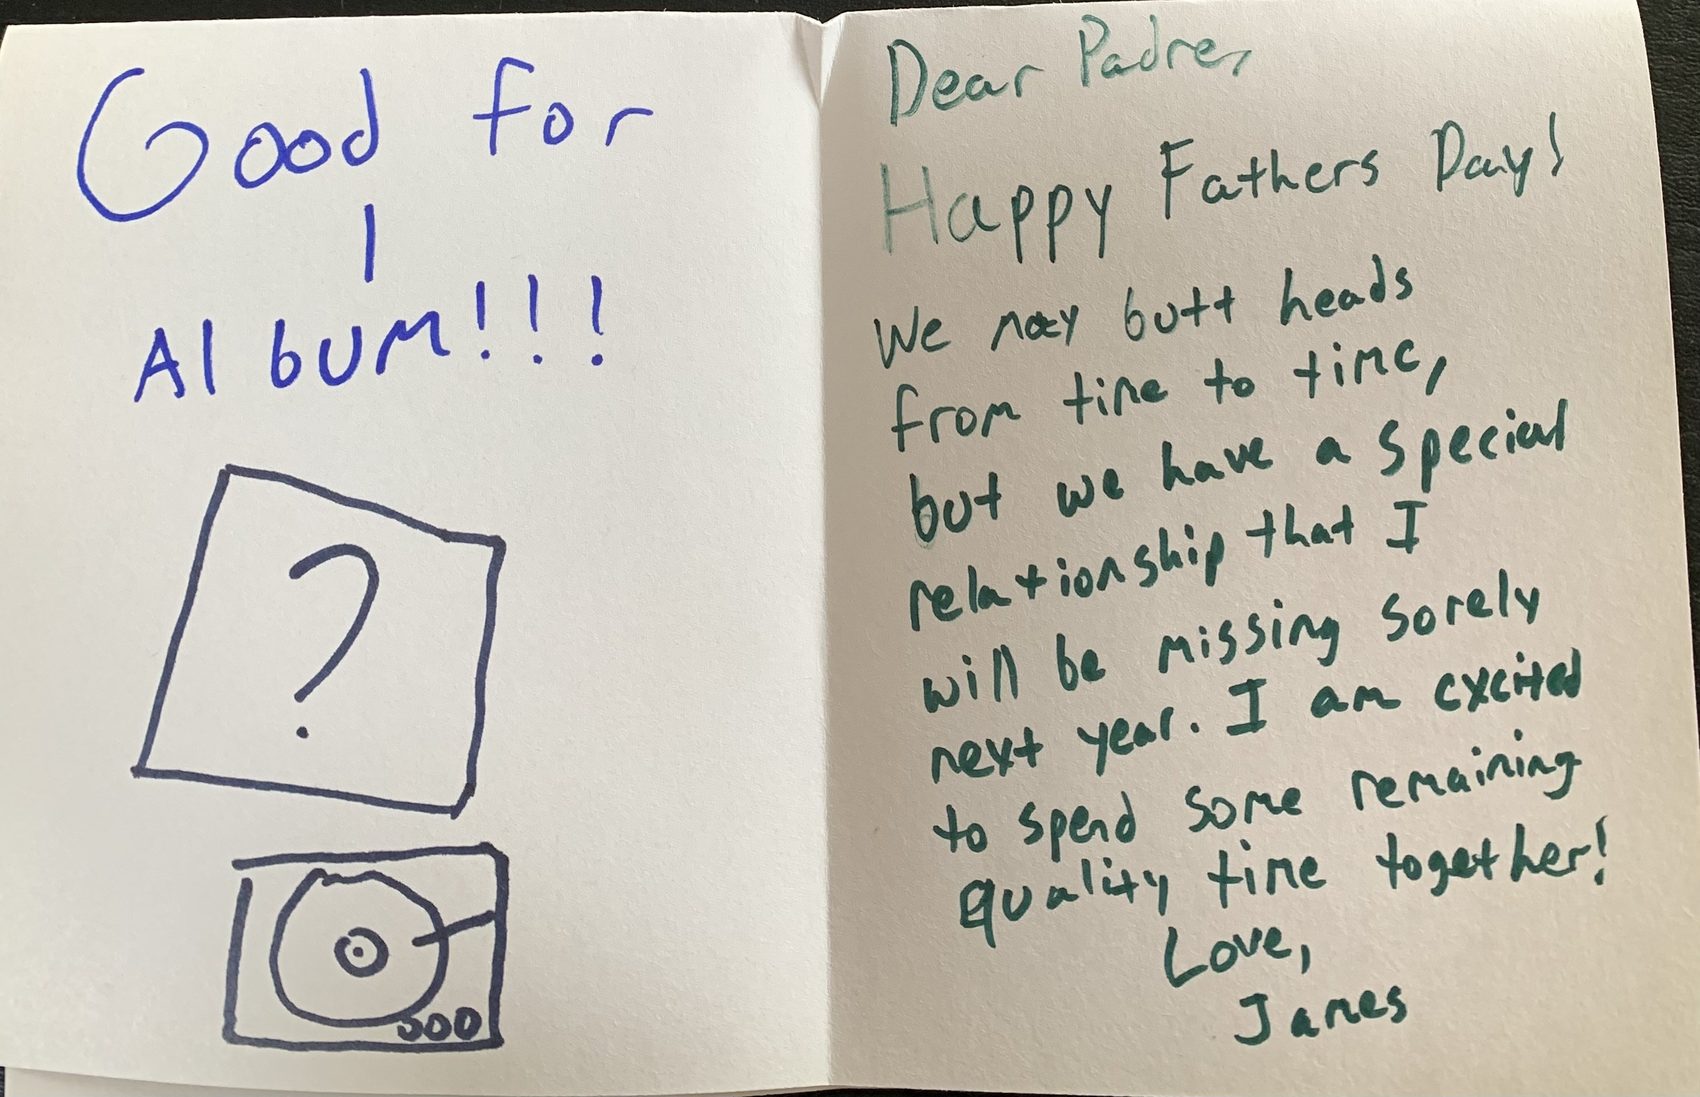 Good for
1
Album!!!
?
Dear Padre,
Happy Fathers Day!
We may butt heads
from time to time,
but we have a special
relationship that I
will be missing sorely
next year. I am excited
to spend some remaining
quality time together!
Love,
James